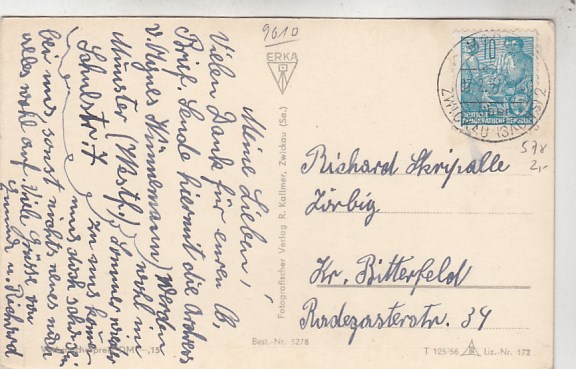 9610
Meine Lieben!
Vielen Dank für euren lb.
Brief. Sende hiermit die Adresse
v. Agnes
Münster (Westf.)
Schulstr. 7
wohl im
Sommer wieder
zu uns
bei uns, sonst nichts neues noch
alles wohl auf. Viele Grüsse von
u. Richard
ERKA
Fotografischer Verlag R. Kallmer, Zwickau (Sa.)
Best.-Nr. 5278
10
ZWICKAU (SACHS) 2
578
2,-
Richard Skripalle
Zörbig
Kr. Bitterfeld
Radegasterstr. 34
T 125/56
Liz.-Nr. 172